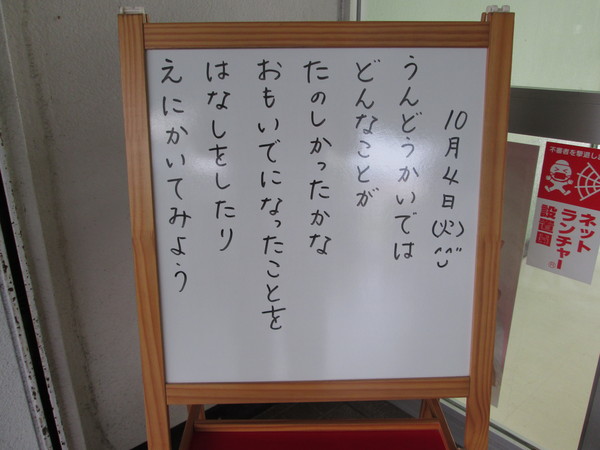 10月4日(火)^^
うんどうかいでは
どんなことが
たのしかったかな
おもいでになったことを
はなしをしたり
えにかいてみよう
不審者を撃退し
ネット
ランチャー
設置園